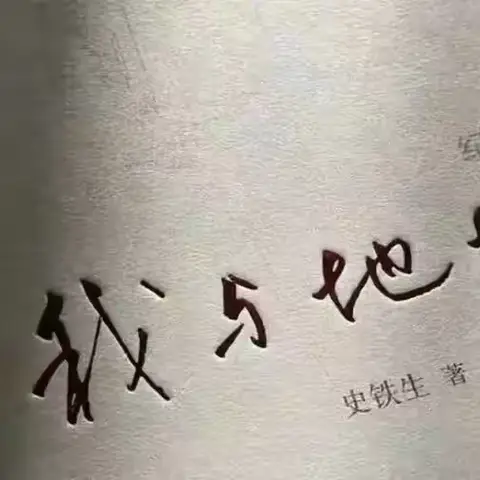 我与地
史铁生 著